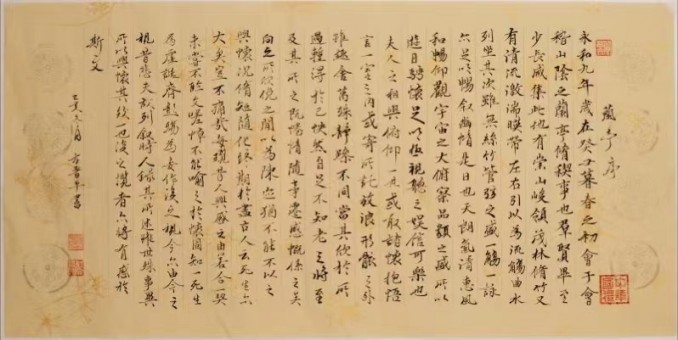 蘭亭序
永和九年歲在癸丑暮春之初會于會
稽山陰之蘭亭脩稧事也羣賢畢至
少長咸集此地有崇山峻領茂林脩竹又
有清流激湍暎帶左右引以為流觴曲水
列坐其次雖無絲竹管弦之盛一觴一詠
亦足以暢叙幽情是日也天朗氣清惠風
和暢仰觀宇宙之大俯察品類之盛所以
遊目騁懷足以極視聽之娛信可樂也
夫人之相與俯仰一世或取諸懷抱悟
言一室之內或寄所託放浪形骸之外
雖趣舍萬殊靜躁不同當其欣於所
遇蹔得於己快然自足不知老之將至
及其所之既惓情隨事遷感慨係之矣
向之所欣俛之間以為陳迹猶不能不以之
興懷況脩短隨化終期於盡古人云死生亦
大矣豈不痛哉每攬昔人興感之由若合一契
未嘗不臨文嗟悼不能喻之於懷固知一死生
為虛誕齊彭殤為妄作後之視今亦由今之
視昔悲夫故列叙時人錄其所述雖世殊事異
所以興懷其致一也後之攬者亦將有感於
斯文